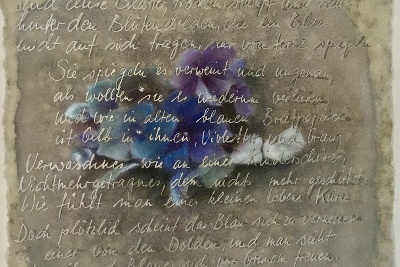 sind diese Blätter, trocken, stumpf und rauh
hinter den Blütendolden, die ein Blau
nicht auf sich tragen, nur von ferne spiegeln
Sie spiegeln es verweint und ungenau,
als wollten sie es wiederum verlieren
und wie in alten blauen Briefpapieren
ist Gelb in ihnen, Violett und Grau,
Verwaschnes wie an einer Kinderschürze,
Nichtmehrgetragnes, dem nichts mehr geschieht:
Wie fühlt man eines kleinen Lebens Kürze
Doch plötzlich scheint das Blau sich zu verneuen
in einer von den Dolden und man sieht
Blaues sich vor Grünem freuen